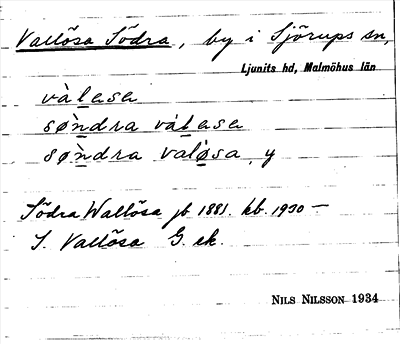 Vallösa Södra, by i Sjörups sn,
Ljunits hd, Malmöhus län
vàlasa
sø̀ndra válasa
sø̀ndra valø̀sa, y
Södra Wallösa jb 1881. kb. 1930 —
S. Vallösa G. ek.
NILS NILSSON 1934